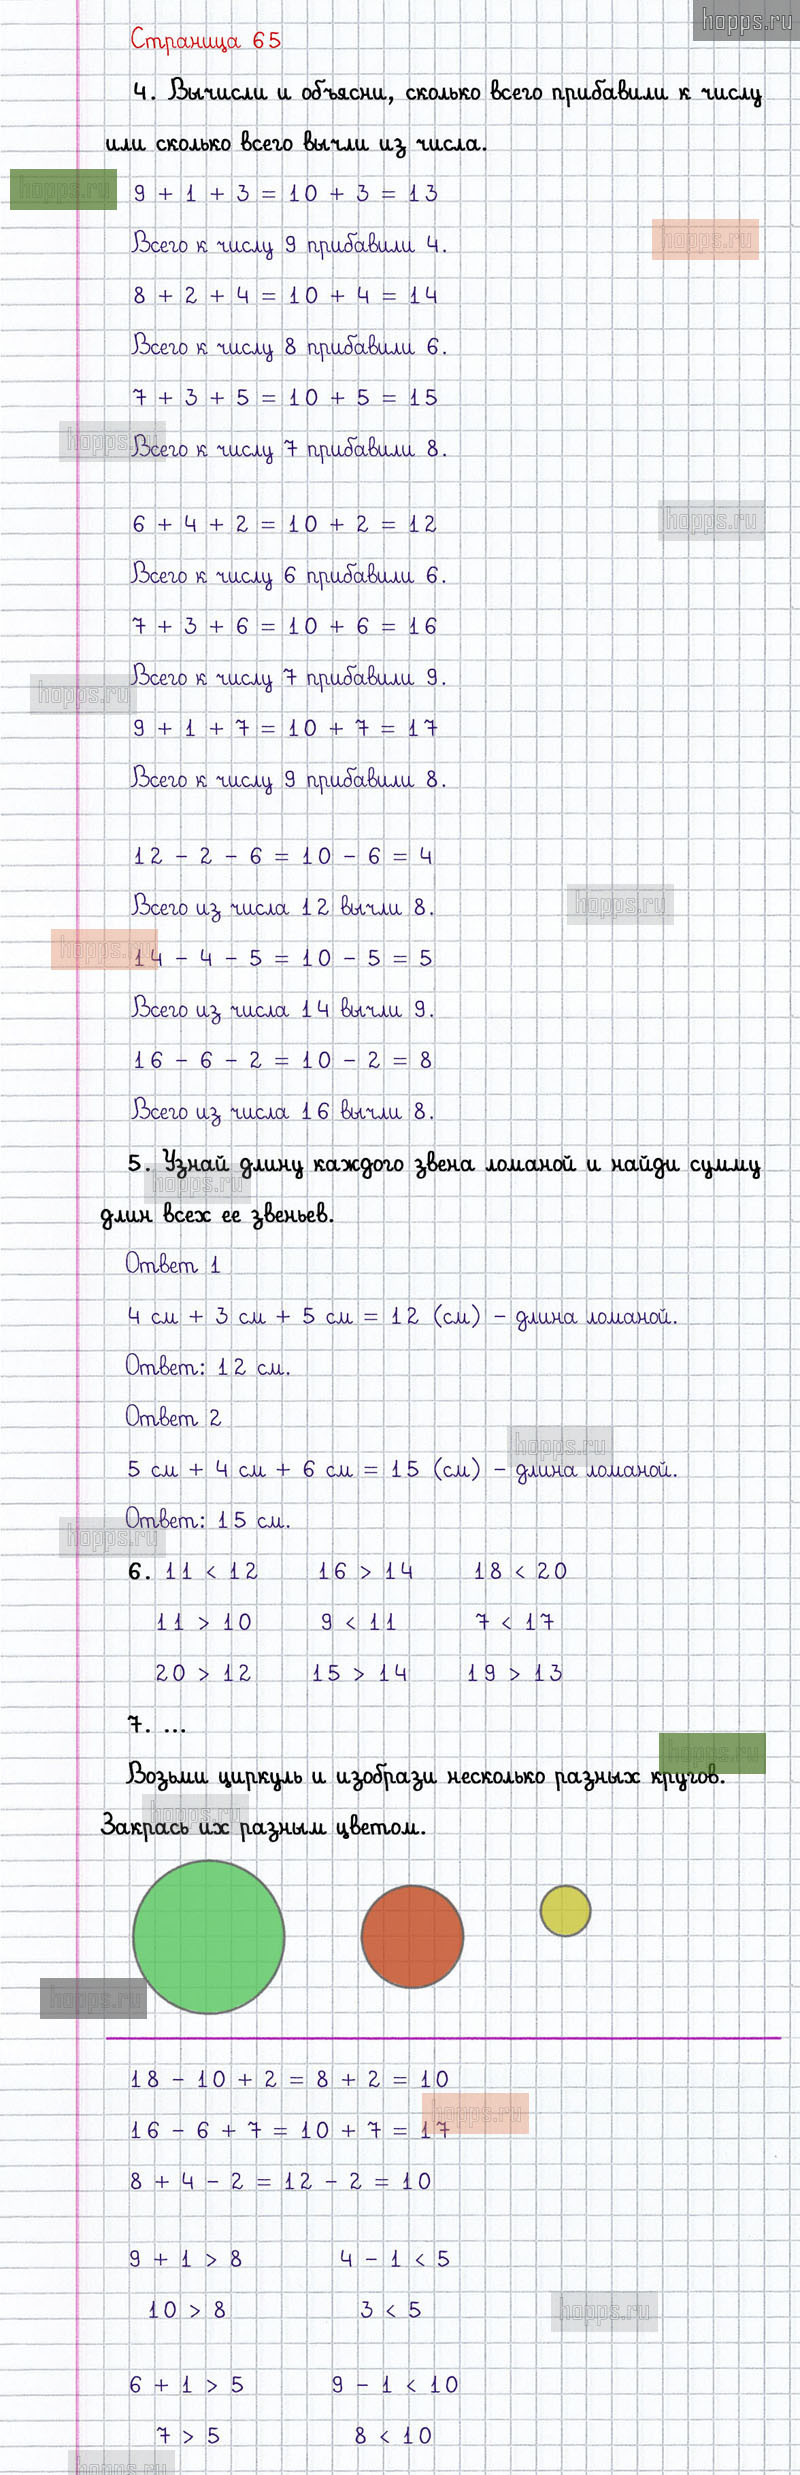 hopps.ru
Страница 65
4. Вычисли и объясни, сколько всего прибавили к числу
или сколько всего вычли из числа.
hopps.ru
9 + 1 + 3 = 10 + 3 = 13
hopps.ru
Всего к числу 9 прибавили 4.
8 + 2 + 4 = 10 + 4 = 14
Всего к числу 8 прибавили 6.
7 + 3 + 5 = 10 + 5 = 15
hopps.ru
Всего к числу 7 прибавили 8.
hopps.ru
6 + 4 + 2 = 10 + 2 = 12
Всего к числу 6 прибавили 6.
7 + 3 + 6 = 10 + 6 = 16
Всего к числу 7 прибавили 9.
hopps.ru
9 + 1 + 7 = 10 + 7 = 17
Всего к числу 9 прибавили 8.
12 - 2 - 6 = 10 - 6 = 4
Всего из числа 12 вычли 8.
hopps.ru
hopps.ru
14 - 4 - 5 = 10 - 5 = 5
Всего из числа 14 вычли 9.
16 - 6 - 2 = 10 - 2 = 8
Всего из числа 16 вычли 8.
5. Узнай длину каждого звена ломаной и найди сумму
hopps.ru
длин всех ее звеньев.
Ответ 1
4 см + 3 см + 5 см = 12 (см) - длина ломаной.
Ответ: 12 см.
Ответ 2
hopps.ru
5 см + 4 см + 6 см = 15 (см) - длина ломаной.
Ответ: 15 см.
hopps.ru
6. 11 < 12 16 > 14 18 < 20
11 > 10 9 < 11 7 < 17
20 > 12 15 > 14 19 > 13
7. ...
hopps.ru
Возьми циркуль и изобрази несколько разных кругов.
hopps.ru
Закрась их разным цветом.
hopps.ru
18 - 10 + 2 = 8 + 2 = 10
hopps.ru
16 - 6 + 7 = 10 + 7 = 17
8 + 4 - 2 = 12 - 2 = 10
9 + 1 > 8 4 - 1 < 5
10 > 8 3 < 5
hopps.ru
6 + 1 > 5 9 - 1 < 10
7 > 5 8 < 10
hopps.ru